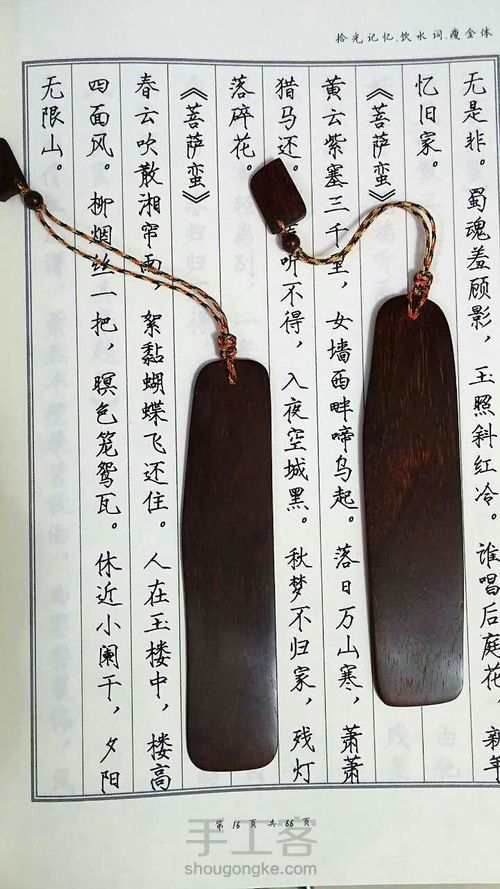 拾光记忆.饮水词.瘦金体
无是非。 蜀魂羞顾影，玉照斜红冷。谁唱后庭花，新年
忆旧家。
《菩萨蛮》
黄云紫塞三千里，女墙西畔啼乌起。落日万山寒，萧萧
猎马还。 听不得，入夜空城黑。秋梦不归家，残灯
落碎花。
《菩萨蛮》
春云吹散湘帘雨，絮黏蝴蝶飞还住。人在玉楼中，楼高
四面风。 柳烟丝一把，暝色笼鸳瓦。休近小阑干，夕阳
无限山。
第 16 页 共 66 页
手工客
shougongke.com